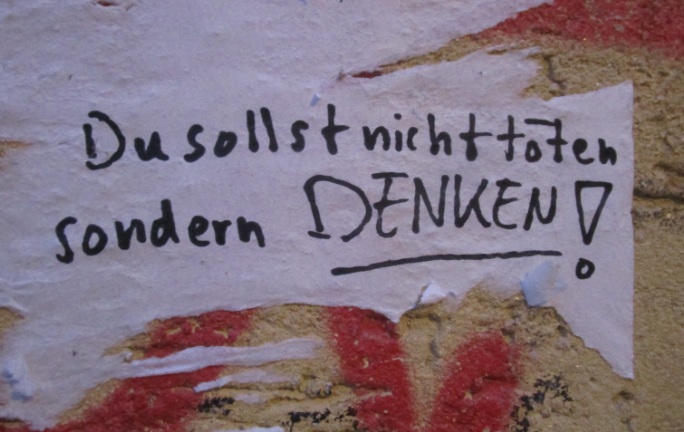 Du sollst nicht töten
sondern DENKEN!